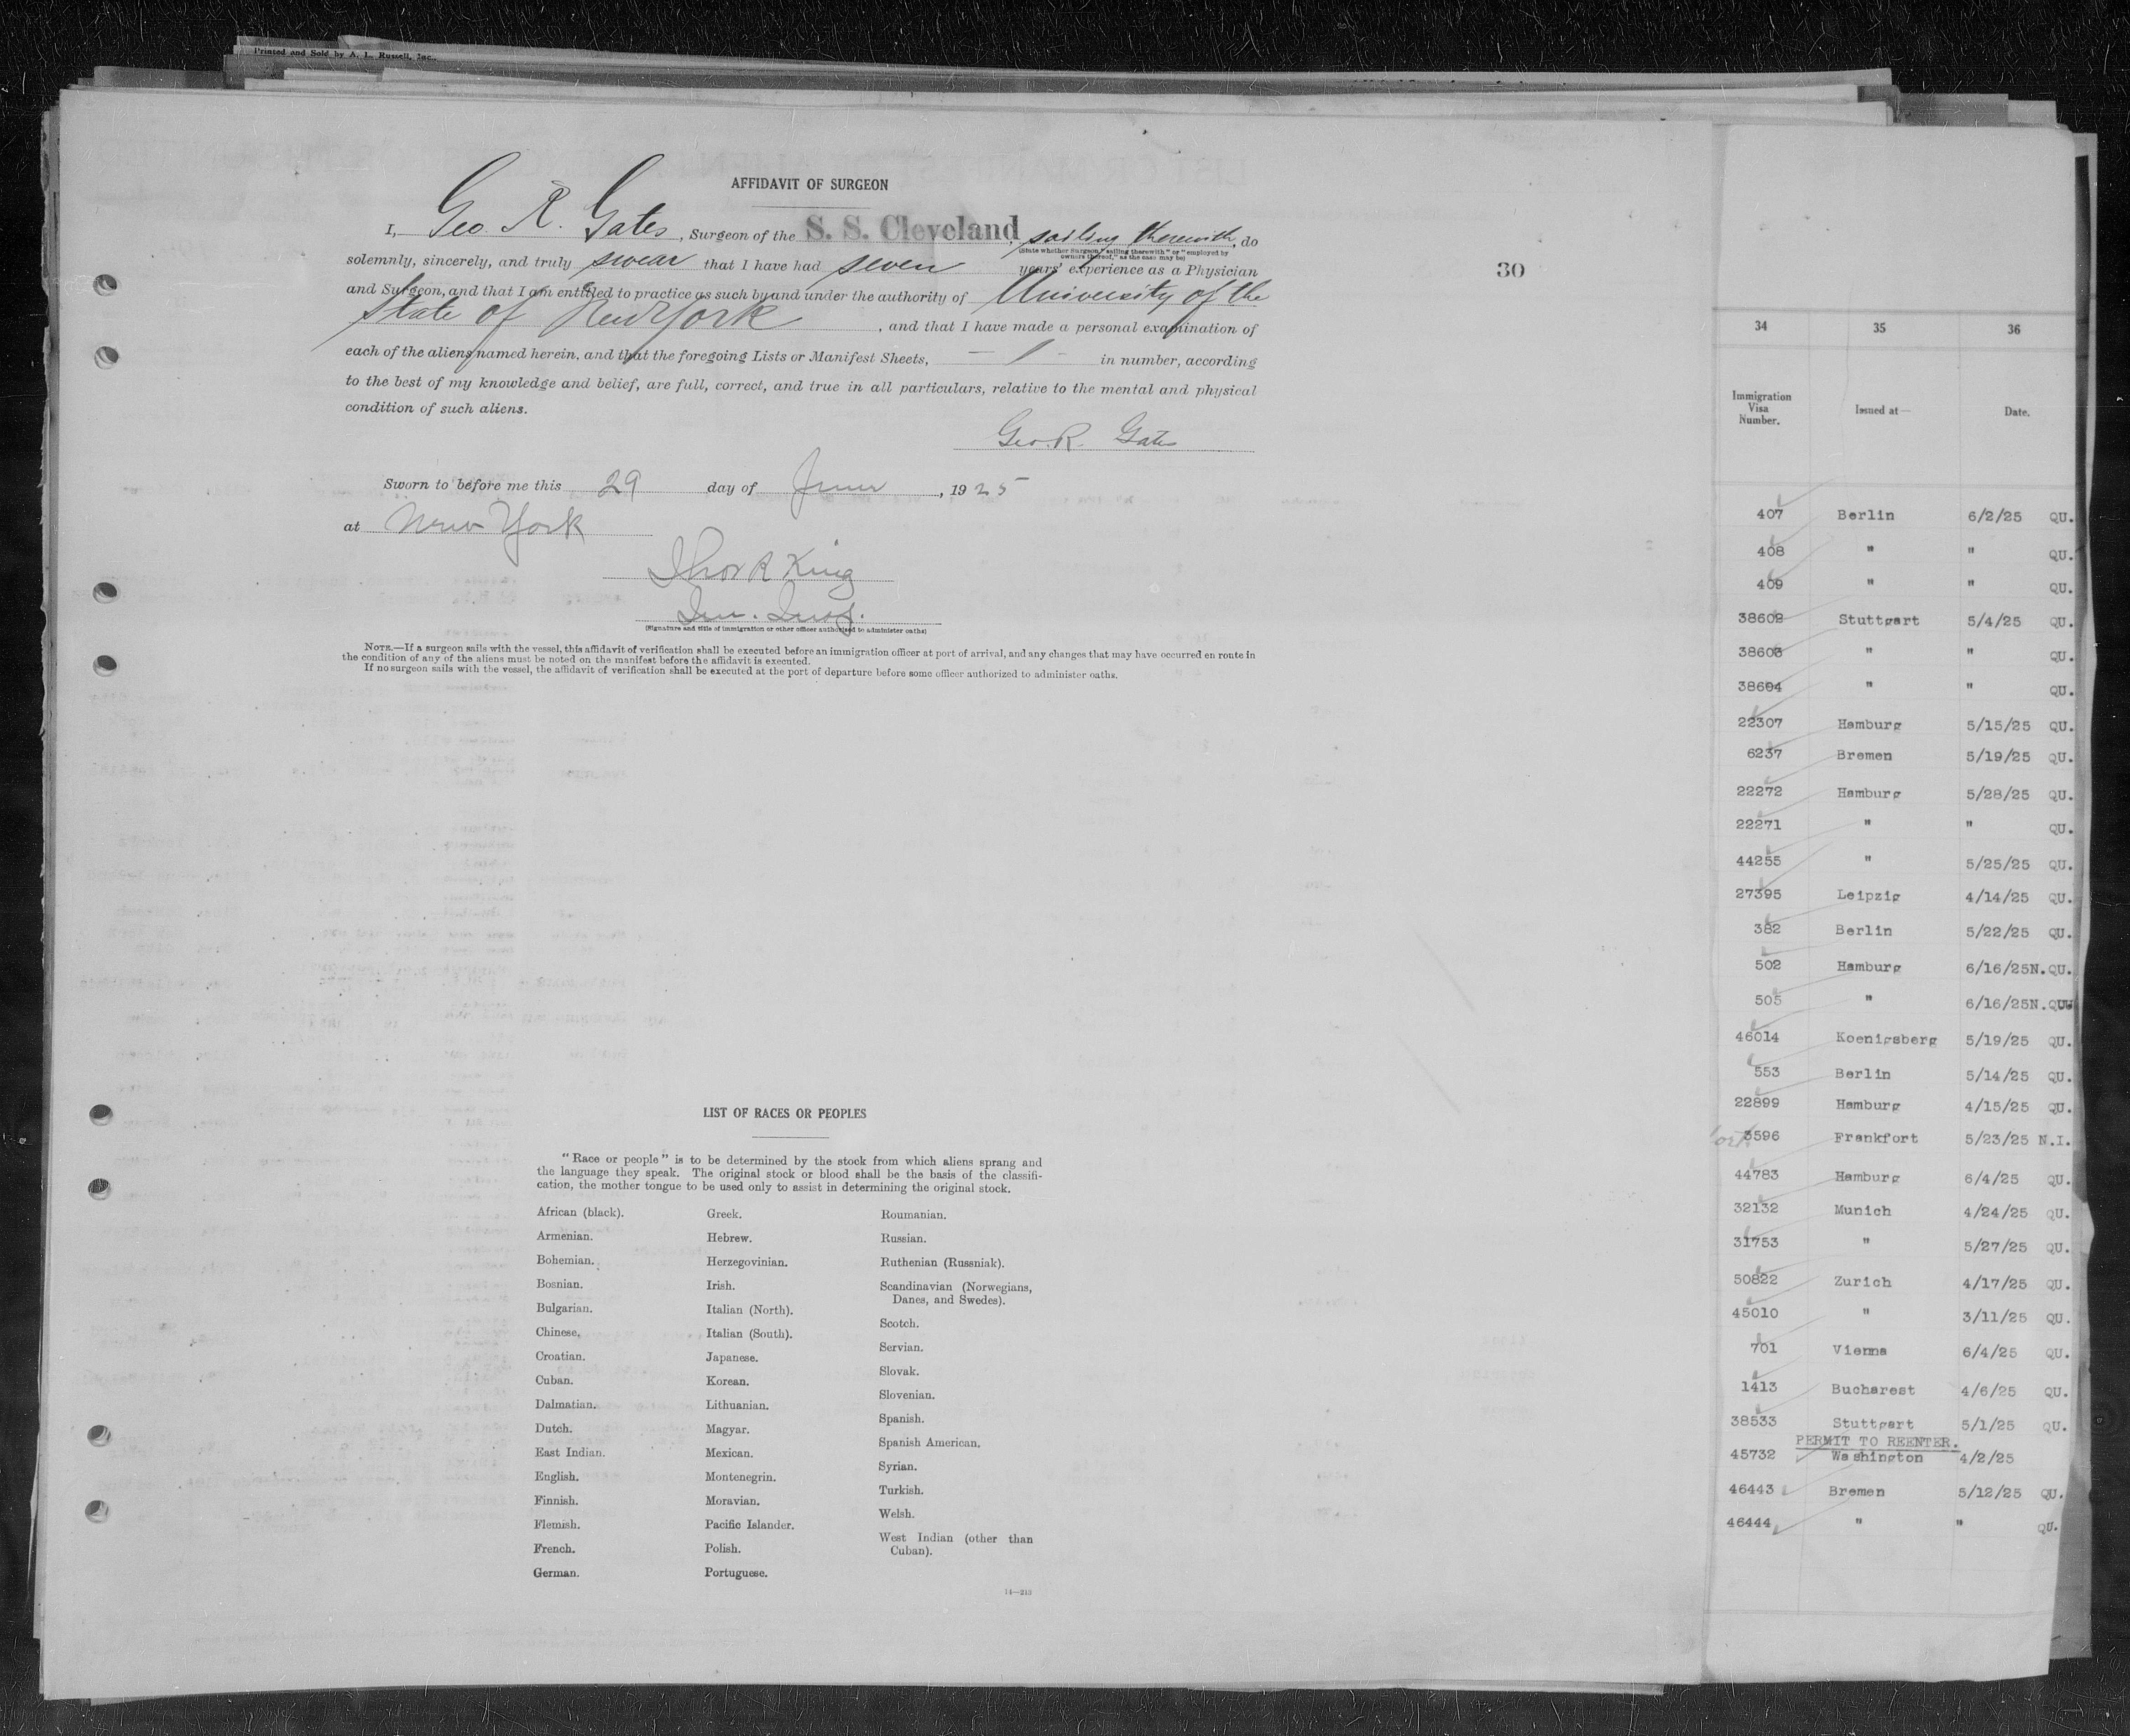 Printed and Sold by A. L. Russell, Inc.
AFFIDAVIT OF SURGEON
I, Geo. R. Gates, Surgeon of the S. S. Cleveland, sailing therewith, do
(State whether Surgeon, "sailing therewith" or "employed by
owners thereof," as the case may be)
solemnly, sincerely, and truly swear that I have had seven years' experience as a Physician
and Surgeon, and that I am entitled to practice as such by and under the authority of University of the
State of New York, and that I have made a personal examination of
each of the aliens named herein, and that the foregoing Lists or Manifest Sheets, — 1 — in number, according
to the best of my knowledge and belief, are full, correct, and true in all particulars, relative to the mental and physical
condition of such aliens.
Geo. R. Gates
Sworn to before me this 29 day of June, 1925
at New York
King
(Signature and title of immigration or other officer authorized to administer oaths)
NOTE.—If a surgeon sails with the vessel, this affidavit of verification shall be executed before an immigration officer at port of arrival, and any changes that may have occurred en route in
the condition of any of the aliens must be noted on the manifest before the affidavit is executed.
If no surgeon sails with the vessel, the affidavit of verification shall be executed at the port of departure before some officer authorized to administer oaths.
LIST OF RACES OR PEOPLES
"Race or people" is to be determined by the stock from which aliens sprang and
the language they speak. The original stock or blood shall be the basis of the classifi-
cation, the mother tongue to be used only to assist in determining the original stock.
African (black).
Armenian.
Bohemian.
Bosnian.
Bulgarian.
Chinese.
Croatian.
Cuban.
Dalmatian.
Dutch.
East Indian.
English.
Finnish.
Flemish.
French.
German.
Greek.
Hebrew.
Herzegovinian.
Irish.
Italian (North).
Italian (South).
Japanese.
Korean.
Lithuanian.
Magyar.
Mexican.
Montenegrin.
Moravian.
Pacific Islander.
Polish.
Portuguese.
Roumanian.
Russian.
Ruthenian (Russniak).
Scandinavian (Norwegians,
Danes, and Swedes).
Scotch.
Servian.
Slovak.
Slovenian.
Spanish.
Spanish American.
Syrian.
Turkish.
Welsh.
West Indian (other than
Cuban).
14—213
30
34 35 36
Immigration
Visa
Number.
Issued at—
Date.
407 Berlin 6/2/25 QU.
408 " " QU.
409 " " QU.
38602 Stuttgart 5/4/25 QU.
38603 " " QU.
38604 " " QU.
22307 Hamburg 5/15/25 QU.
6237 Bremen 5/19/25 QU.
22272 Hamburg 5/28/25 QU.
22271 " " QU.
44255 " 5/25/25 QU.
27395 Leipzig 4/14/25 QU.
382 Berlin 5/22/25 QU.
502 Hamburg 6/16/25N.QU.
505 " 6/16/25N.QU
46014 Koenigsberg 5/19/25 QU.
553 Berlin 5/14/25 QU.
22899 Hamburg 4/15/25 QU.
3596 Frankfort 5/23/25 N.I.
44783 Hamburg 6/4/25 QU.
32132 Munich 4/24/25 QU.
31753 " 5/27/25 QU.
50822 Zurich 4/17/25 QU.
45010 " 3/11/25 QU.
701 Vienna 6/4/25 QU.
1413 Bucharest 4/6/25 QU.
38533 Stuttgart 5/1/25 QU.
PERMIT TO REENTER.
45732 Washington 4/2/25
46443 Bremen 5/12/25 QU.
46444 " " QU.